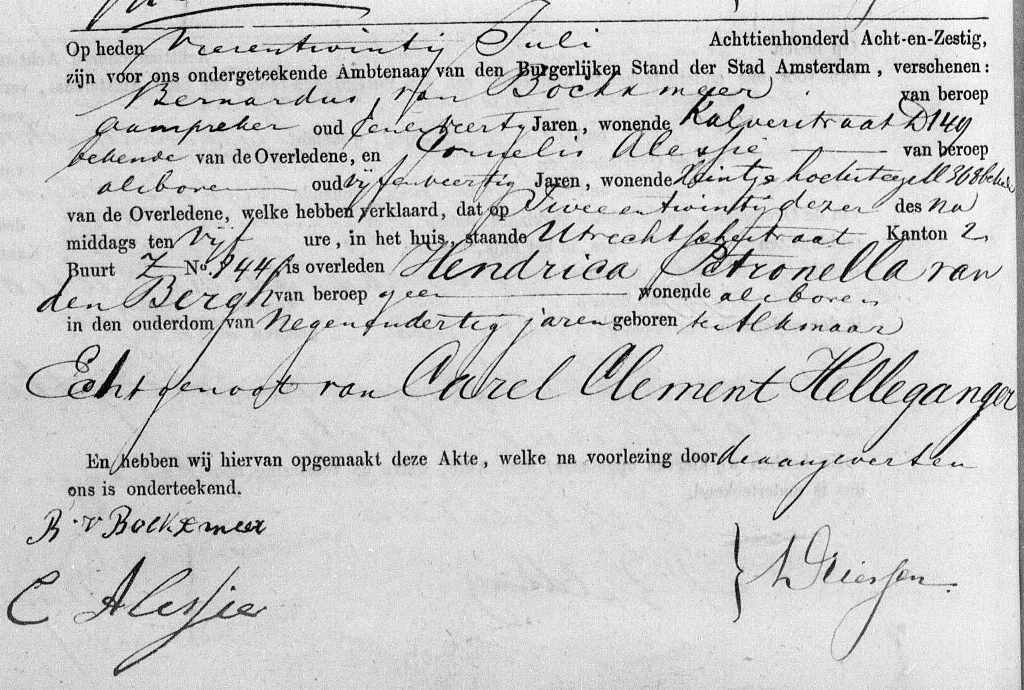 Op heden Vierentwintig Juli Achttienhonderd Acht-en-Zestig,
zijn voor ons ondergeteekende Ambtenaar van den Burgerlijken Stand der Stad Amsterdam, verschenen:
Bernardus van Bockxmeer van beroep
aanspreker oud Eenenveertig Jaren, wonende Kalverstraat D149
bekende van de Overledene, en Cornelis Alessie van beroep
als boven oud vijfenveertig Jaren, wonende M 368 bekende
van de Overledene, welke hebben verklaard, dat op Tweeentwintig dezer des na
middags ten vijf ure, in het huis, staande Utrechtschestraat Kanton 2
Buurt Z No. is overleden Hendrica Petronella van
den Bergh van beroep geen wonende als boven
in den ouderdom van Negenendertig jaren geboren te Alkmaar
Echtgenoot van Carel Clement Helleganger
En hebben wij hiervan opgemaakt deze Akte, welke na voorlezing door de aangevers en
ons is onderteekend.
B. v Bockxmeer
C Alessie